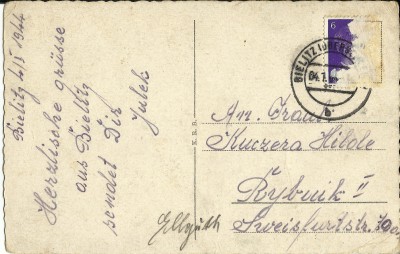 Bielitz 4/I 1944
Herzlische grüsse
aus Bielitz
sendet Dir
Julek
An. Frau
Kuczera Hilde
Rybnik II
Sweisfurtstr.
6
BIELITZ
04.1.
b
K.B.B.